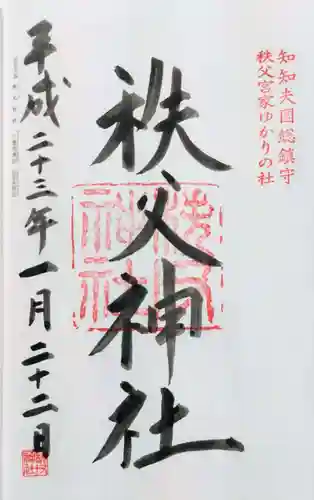 知知夫国総鎮守
秩父宮家ゆかりの社
秩父神社
平成二十三年一月二十二日